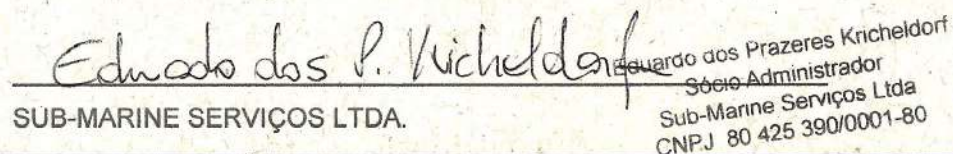 Eduardo dos P. Kricheldorf
SUB-MARINE SERVIÇOS LTDA.
Eduardo dos Prazeres Kricheldorf
Sócio Administrador
Sub-Marine Serviços Ltda
CNPJ 80 425 390/0001-80